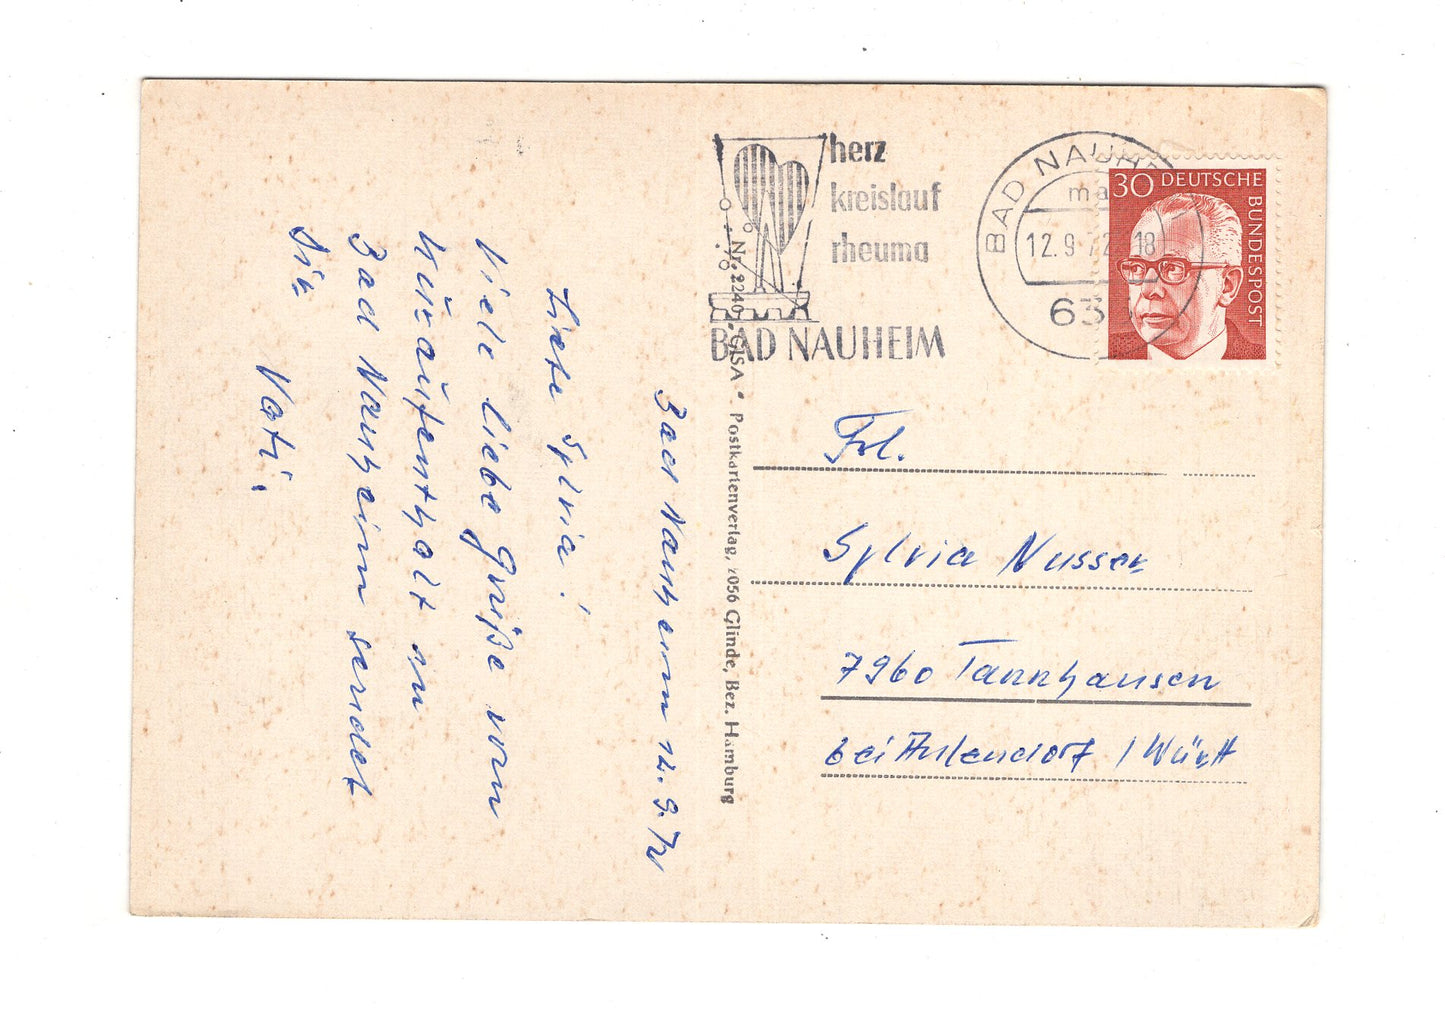 Bad Nauheim 12.9.72
Liebe Sylvia!
Viele liebe Grüße vom
Kuraufenthalt in
Bad Nauheim sendet
Dir
Vati.
Nr. 2240 • GISA • Postkartenverlag, 2056 Glinde, Bez. Hamburg
herz
kreislauf
rheuma
BAD NAUHEIM
BAD NAUHE
ma
12.9.72 18
635
30 DEUTSCHE
BUNDESPOST
Frl.
Sylvia Nusser
7960 Tannhausen
bei Aulendorf / Württ